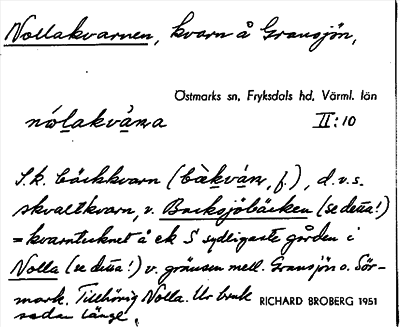 Nollakvarnen, kvarn å Gransjön,
Östmarks sn, Fryksdals hd, Värml. län
nólakvạ̀ṇa II:10
S.k. bäckkvarn (bækván, f.), d.v.s.
skvaltkvarn, v. Backsjöbäcken (se detta!)
= kvarntecknet å ek S sydligaste gården i
Nolla (se detta!) v. gränsen mell. Gransjön o. Sör-
mark. Tillhörig Nolla. Ur bruk
sedan länge.
RICHARD BROBERG 1951